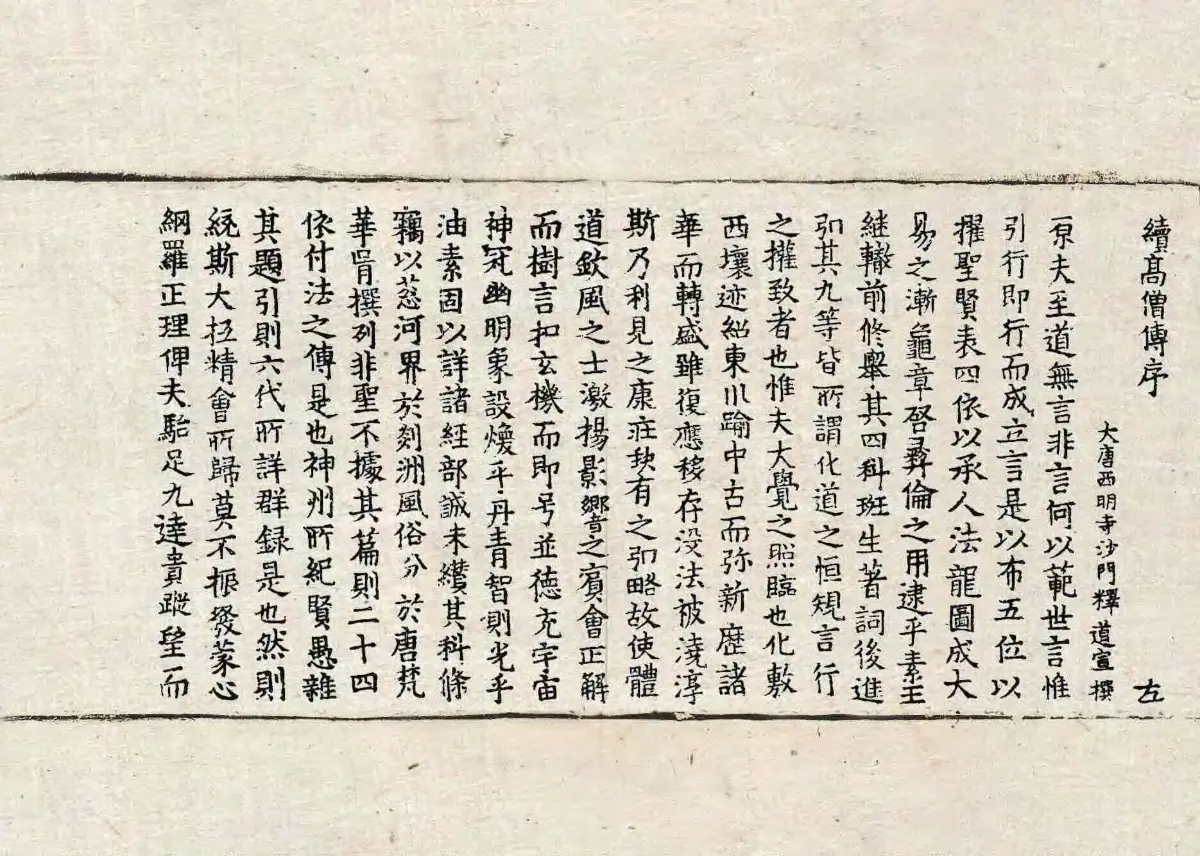 續高僧傳序 左
大唐西明寺沙門釋道宣撰
原夫至道無言非言何以範世言惟
引行即行而成立言是以布五位以
擢聖賢表四依以承人法龍圖成大
易之漸龜章啓彛倫之用逮乎素王
継轍前修舉其四科班生著詞後進
弘其九等皆所謂化道之恒規言行
之權致者也惟夫大覺之照臨也化敷
西壤迹紹東川踰中古而弥新歷諸
華而轉盛雖復應移存没法被澆淳
斯乃利見之康莊缺有之弘略故使體
道欽風之士激揚影響之賓會正解
而樹言扣玄機而即号並德充宇宙
神冠幽明象設煥乎丹青智則光乎
油素固以詳諸經部誠未纘其科條
竊以葱河界於剡洲風俗分於唐梵
華胥撰列非聖不據其篇則二十四
依付法之傳是也神州所紀賢愚雜
其題引則六代所詳群録是也然則
統斯大抵精會所歸莫不振發蒙心
綱羅正理俾夫駘足九逵貴蹤望而